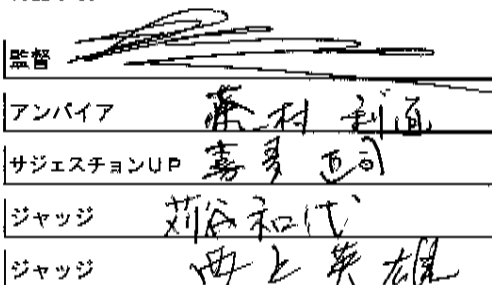 監督
アンパイア 村 利
サジェスチョンUP 喜多 司
ジャッジ 苅谷和代
ジャッジ 井上英雄